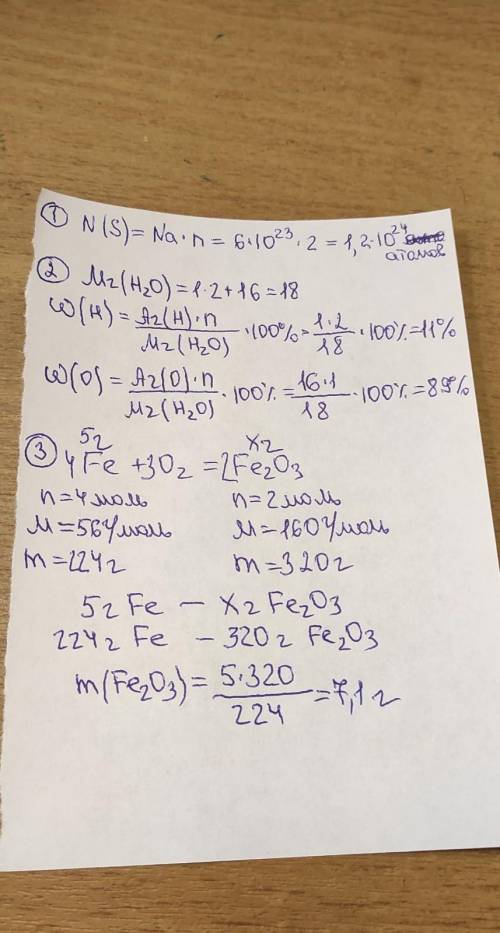 ① N(S) = Na·n = 6·10²³·2 = 1,2·10²⁴
атомов
② Mг(H₂O) = 1·2+16 = 18
ω(H) = Aг(H)·n / Mг(H₂O) ·100% = 1·2 / 18 ·100% = 11%
ω(O) = Aг(O)·n / Mг(H₂O) ·100% = 16·1 / 18 ·100% = 89%
5г xг
③ 4Fe + 3O₂ = 2Fe₂O₃
n = 4 моль n = 2 моль
M = 56 г/моль M = 160 г/моль
m = 224 г m = 320 г
5г Fe — xг Fe₂O₃
224г Fe — 320г Fe₂O₃
m(Fe₂O₃) = 5·320 / 224 = 7,1 г